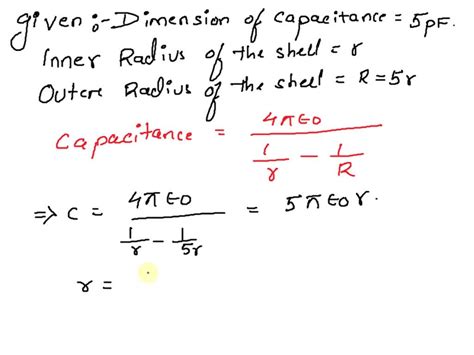 Given :- Dimension of Capacitance = 5pF.
Inner Radius of the shell = r
Outere Radius of the shell = R = 5r
Capacitance = 4π∈0 / (1/r - 1/R)
⇒ C = 4π∈0 / (1/r - 1/5r) = 5π∈0 r.
r =